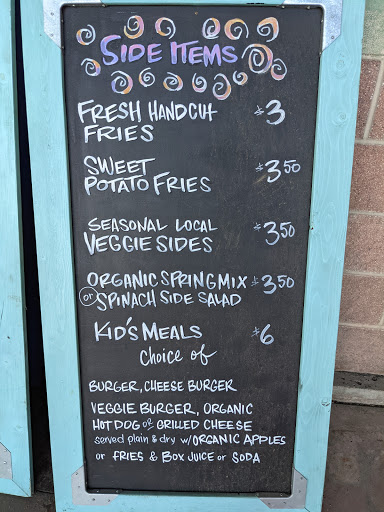 SIDE ITEMS
FRESH HANDCUT $3
FRIES
SWEET $3.50
POTATO FRIES
SEASONAL LOCAL $3.50
VEGGIE SIDES
ORGANIC SPRING MIX $3.50
or SPINACH SIDE SALAD
KID'S MEALS $6
choice of
BURGER, CHEESE BURGER
VEGGIE BURGER, ORGANIC
HOT DOG or GRILLED CHEESE
served plain & dry w/ORGANIC APPLES
or FRIES & BOX JUICE or SODA